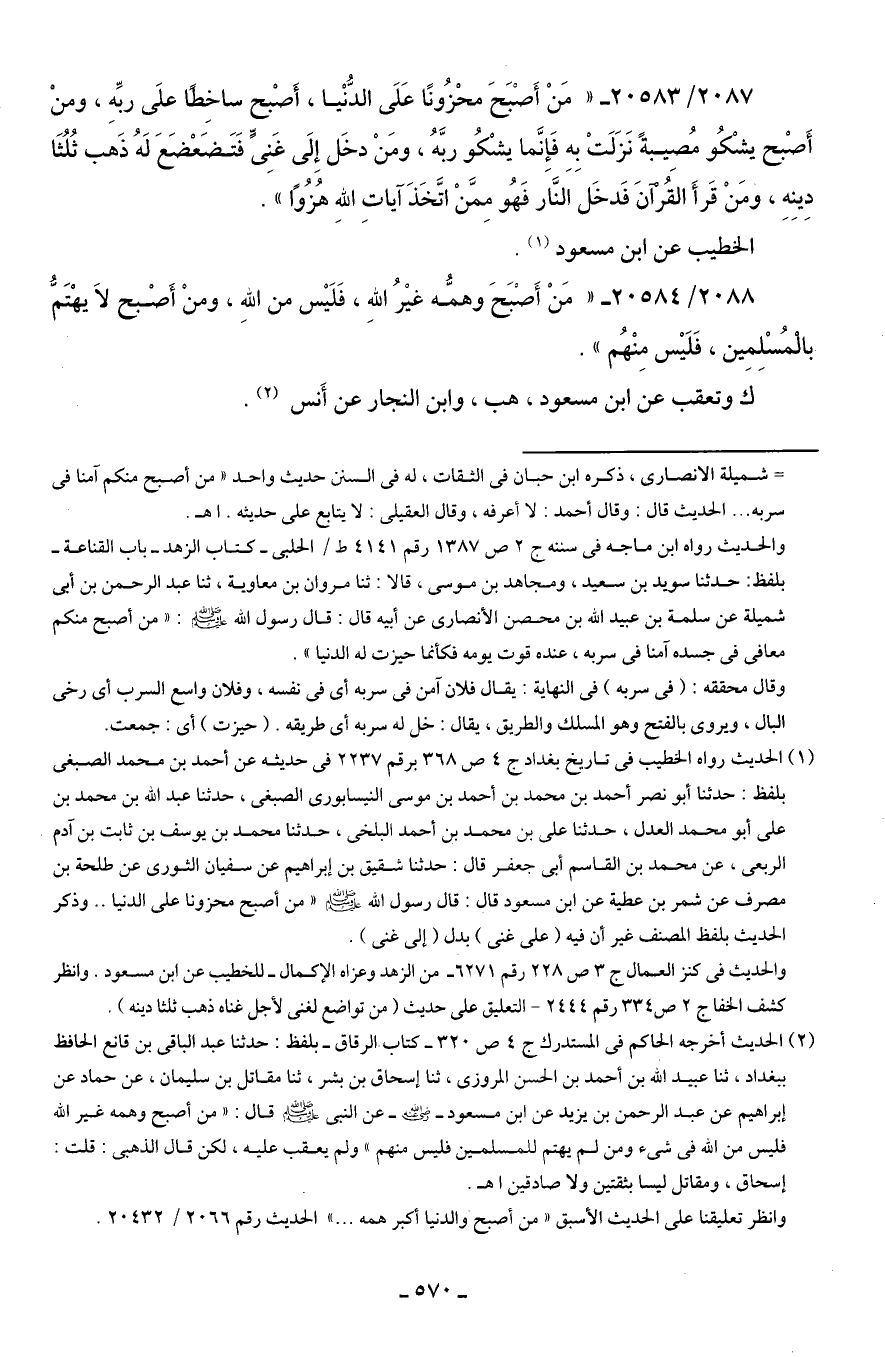 ٢٠٥٨٣/٢٠٨٧ـ « مَنْ أَصْبَحَ محْزُونًا عَلَى الدُّنْيـا ، أَصْبح ساخِطًا علَى ربِّه ، ومنْ
أَصْبح يشْكُو مُصِيبةً نَزَلَتْ بِهِ فَإِنَّما يشْكُو ربَّهُ ، ومَنْ دخَل إِلَى غَنِىٍّ فَتَـضَعْضَعَ لَهُ ذَهب ثُلُثَا
دِينِهِ ، ومَنْ قَرأَ القُرآنَ فَدخَلَ النَّار فَهُو مِمَّنْ اتَّخَذَ آياتِ اللهِ هُزُوًا » .
الخطيب عن ابن مسعود (١) .
٢٠٥٨٤/٢٠٨٨ـ « مَنْ أَصْبَحَ وهمُّـه غَيْرُ اللهِ ، فَلَيْس مِن اللهِ ، ومنْ أَصْـبح لاَ يهْتَمُّ
بِالْمُسْلِمِين ، فَلَيْس مِنْهُم » .
ك وتعقب عن ابن مسعود ، هب ، وابن النجار عن أَنس (٢) .
= شـميلة الانصـارى ، ذكـره ابن حبـان فى الثـقات ، له فى السـنن حديث واحـد « من أصـبح منكم آمنا فى
سربه... الحديث قال : وقال أحمد : لا أعرفه ، وقال العقيلى : لا يتابع على حديثه . ا هـ .
والحـديث رواه ابن مـاجـه فى سننه ج ٢ ص ١٣٨٧ رقم ٤١٤١ ط / الحلبى ـ كـتـاب الزهـد ـ باب القناعـة ـ
بلفظ: حـدثنا سويد بن سـعيد ، ومـجاهد بن مـوسى ، قالا : ثنا مـروان بن معاويـة ، ثنا عبد الرحمـن بن أبى
شميلة عن سلمة بن عبيد الله بن محـصن الأنصارى عن أبيه قال : قـال رسول الله ﷺ : « من أصبح منكم
معافى فى جسده آمنا فى سربه ، عنده قوت يومه فكأنما حيزت له الدنيا » .
وقال محققه : ( فى سربه ) فى النهاية : يقـال فلان آمن فى سربه أى فى نفسه ، وفلان واسع السرب أى رخى
البال ، ويروى بالفتح وهو المسلك والطريق ، يقال : خل له سربه أى طريقه . ( حيزت ) أى : جمعت.
(١) الحديث رواه الخطيب فى تـاريخ بغداد ج ٤ ص ٣٦٨ برقم ٢٢٣٧ فى حديثـه عن أحمد بن مـحمد الصـبغى
بلفظ : حدثنا أبو نصر أحمد بن محمد بن أحمد بن موسى النيسابورى الصبغى ، حدثنا عبد الله بن محمد بن
على أبو محـمد العدل ، حـدثنا على بن محـمد بن أحمد البلخى ، حـدثنا محمـد بن يوسف بن ثابت بن آدم
الربعى ، عن محمـد بن القاسم أبى جعفـر قال : حدثنا شـقيق بن إبراهيم عن سفيان الثورى عن طلحة بن
مصرف عن شمر بن عطية عن ابن مسعود قال : قال رسول الله ﷺ « من أصبح محزونا على الدنيا .. وذكر
الحديث بلفظ المصنف غير أن فيه ( على غنى ) بدل ( إلى غنى ) .
والحديث فى كنز العمال ج ٣ ص ٢٢٨ رقم ٦٢٧١ـ من الزهد وعزاه الإكمـال ـ للخطيب عن ابن مسعود . وانظر
كشف الخفا ج ٢ ص٣٣٤ رقم ٢٤٤٤ - التعليق على حديث ( من تواضع لغنى لأجل غناه ذهب ثلثا دينه ) .
(٢) الحديث أخرجه الحاكم فى المستدرك ج ٤ ص ٣٢٠ـ كتاب الرقاق ـ بلفظ : حدثنا عبد الباقى بن قانع الحافظ
ببغداد ، ثنا عبيـد الله بن أحمد بن الحسن المروزى ، ثنا إسحاق بن بشر ، ثنا مقـاتل بن سليمان ، عن حماد عن
إبراهيم عن عبـد الرحمن بن يزيد عن ابن مـسعود ـ رضى الله عنه ـ عن النبى ﷺ قـال : « من أصبح وهمه غير الله
فليس من الله فى شىء ومن لـم يهتم للمسـلمين فليس منهم » ولم يعـقب عليـه ، لكن قـال الذهبى : قلت :
إسحاق ، ومقاتل ليسا بثقتين ولا صادقين ا هـ .
وانظر تعليقنا على الحديث الأسبق « من أصبح والدنيا أكبر همه ...» الحديث رقم ٢٠٦٦ / ٢٠٤٣٢ .
ـ ٥٧٠ ـ